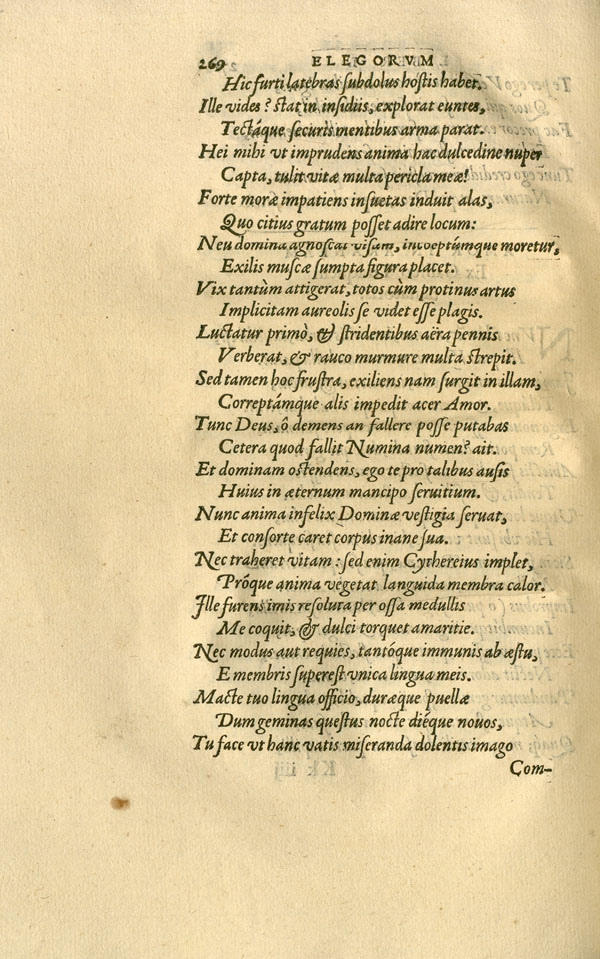 269 ELEGORVM
Hic furti latebras subdolus hostis habet.
Ille vides? stat in insidiis, explorat euntes,
Tectáque securis mentibus arma parat.
Hei mihi vt imprudens anima hac dulcedine nuper
Capta, tulit vitæ multa pericla meæ!
Forte moræ impatiens insuetas induit alas,
Quo citius gratum posset adire locum:
Neu domina agnoscat visam, inceptámque moretur,
Exilis muscæ sumpta figura placet.
Vix tantùm attigerat, totos cùm protinus artus
Implicitam aureolis se videt esse plagis.
Luctatur primò, & stridentibus aëra pennis
Verberat, & rauco murmure multa strepit.
Sed tamen hoc frustra, exiliens nam surgit in illam,
Correptámque alis impedit acer Amor.
Tunc Deus, ô demens an fallere posse putabas
Cetera quod fallit Numina numen? ait.
Et dominam ostendens, ego te pro talibus ausis
Huius in æternum mancipo seruitium.
Nunc anima infelix Dominæ vestigia seruat,
Et consorte caret corpus inane sua.
Nec traheret vitam: sed enim Cythereius implet,
Próque anima vegetat languida membra calor.
Ille furens imis resoluta per ossa medullis
Me coquit, & dulci torquet amaritie.
Nec modus aut requies, tantóque immunis ab æstu,
E membris superest vnica lingua meis.
Macte tuo lingua officio, duræque puellæ
Dum geminas questus nocte diéque nouos,
Tu face vt hanc vatis miseranda dolentis imago
Com-